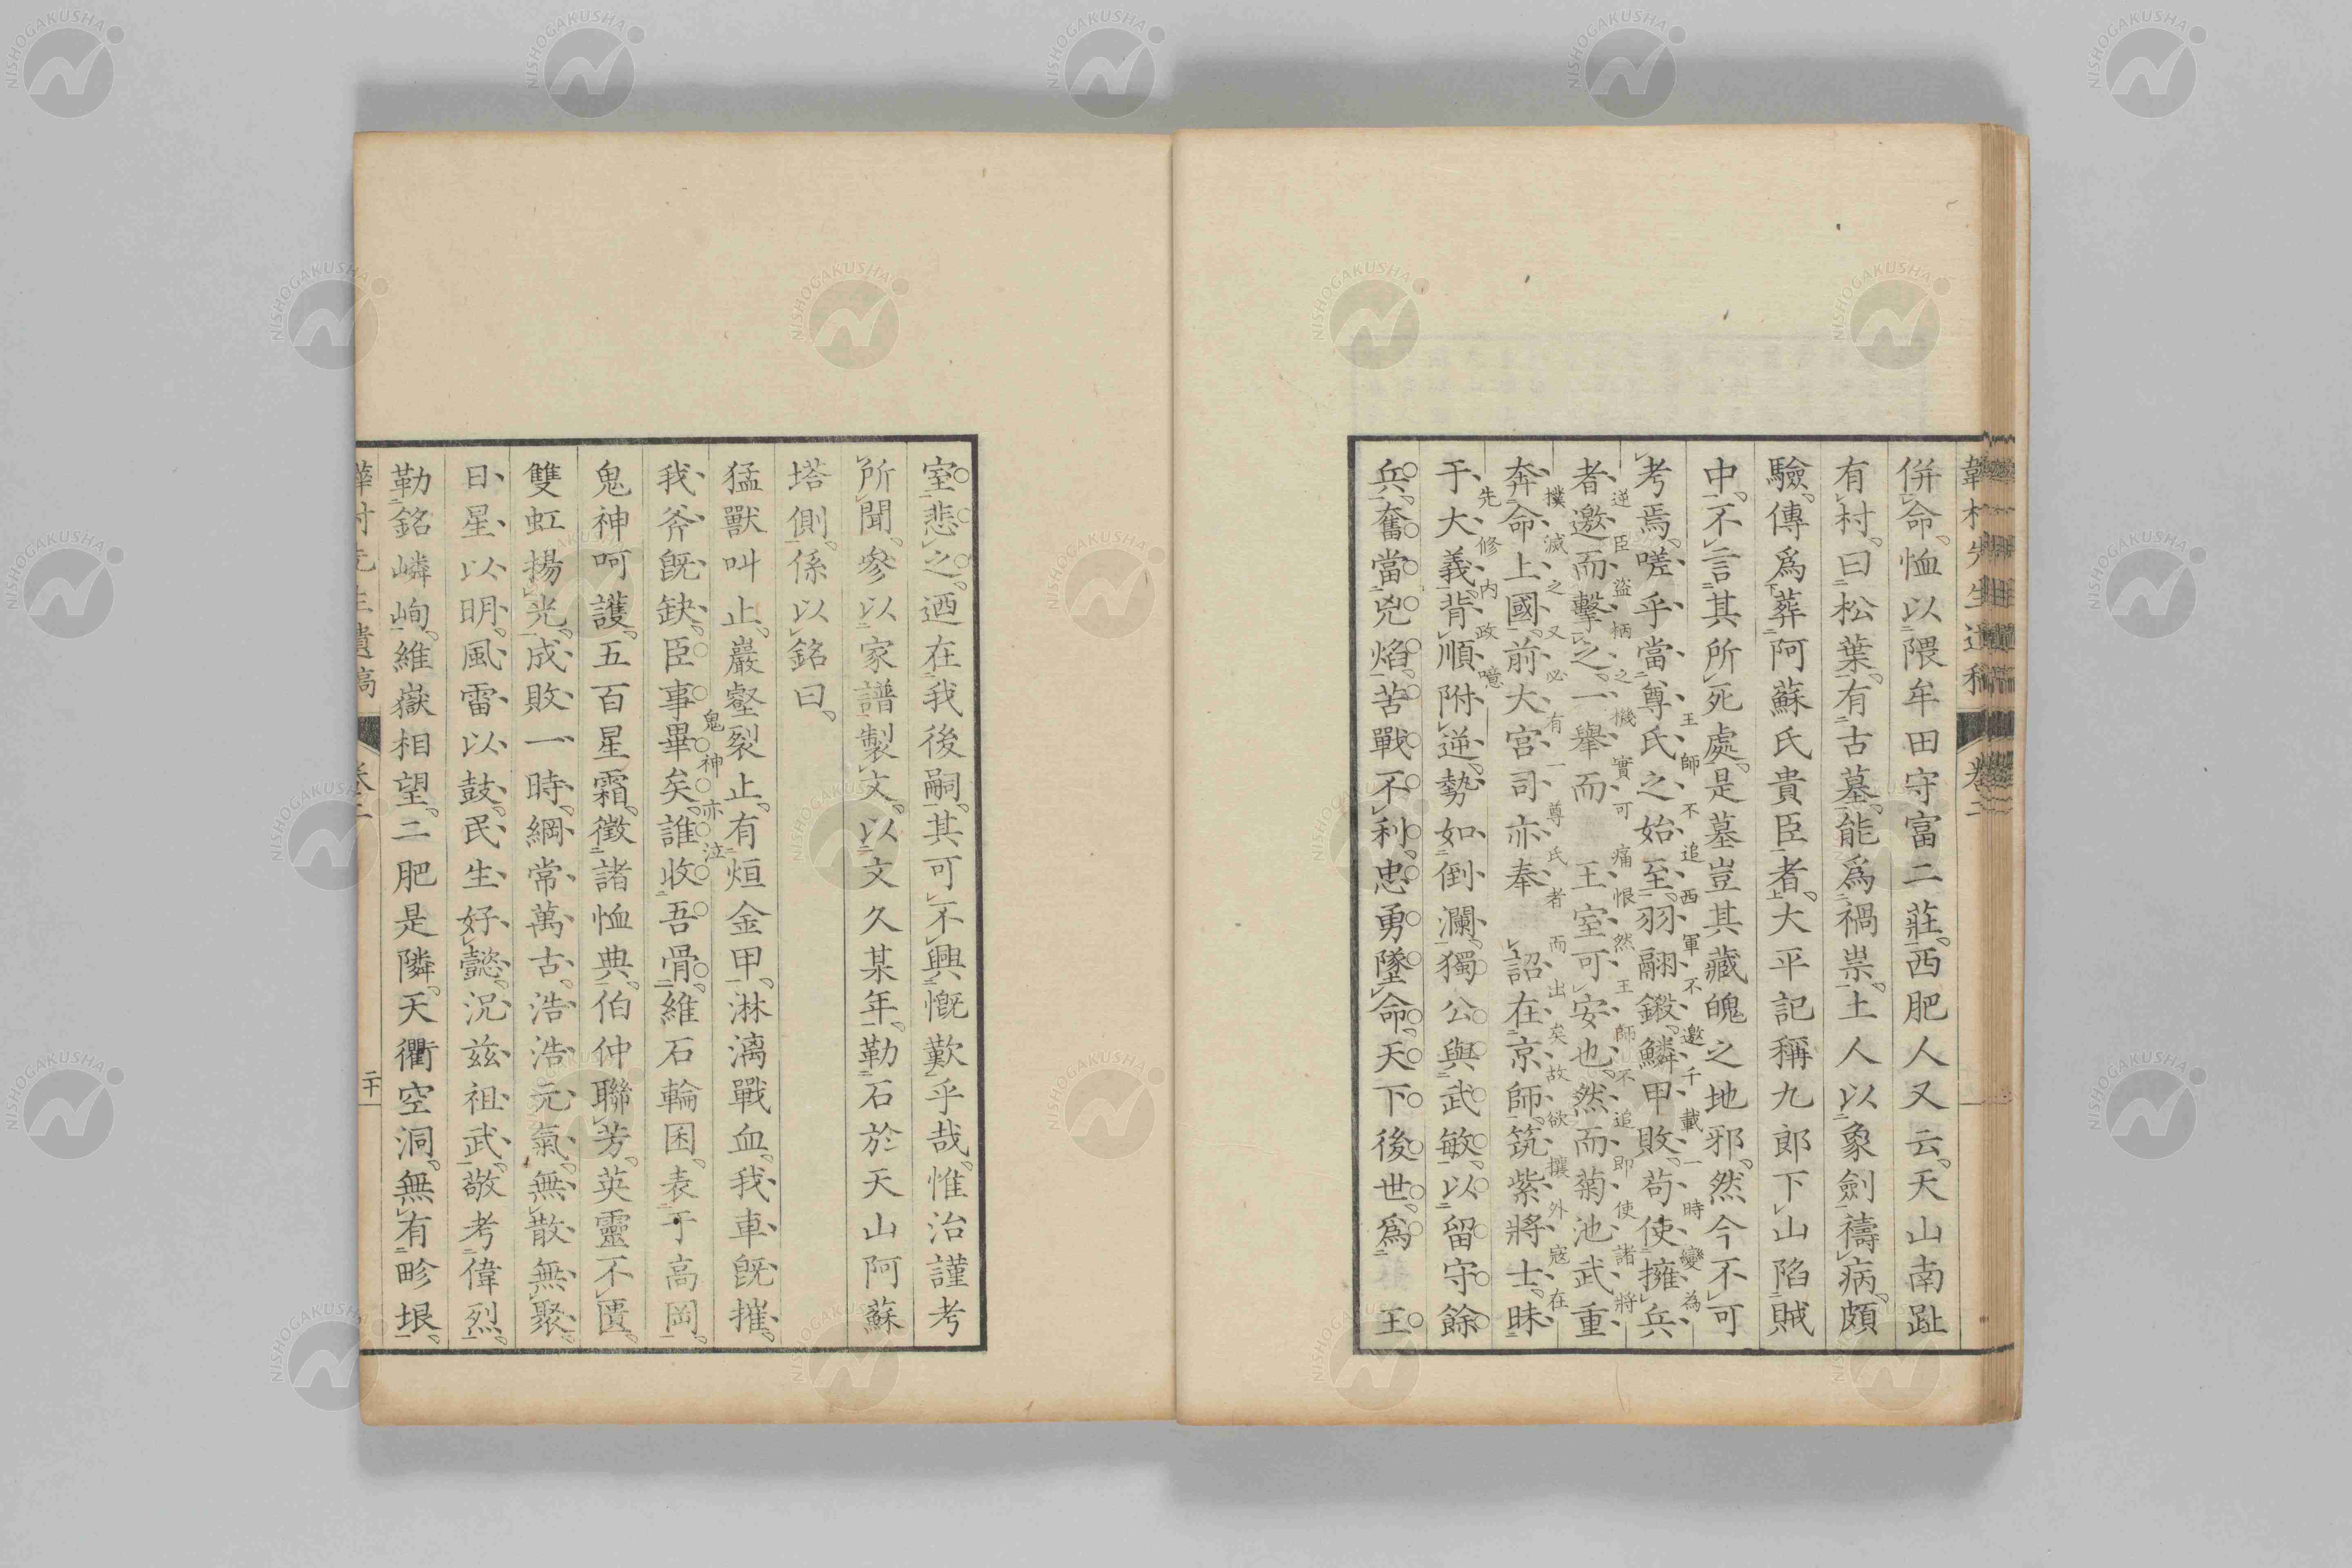 韡村先生遺稿 卷二
併命恤以隈牟田守富二莊西肥人又云天山南趾
有村曰松葉有古墓能爲禍祟土人以象劍禱病頗
驗傳爲葬阿蘇氏貴臣者大平記稱九郎下山陷賊
中不言其所死處是墓豈其藏魄之地邪然今不可
王師不追西軍不邀千載一時變為
考焉嗟乎當尊氏之始至羽翮鎩鱗甲敗苟使擁兵
逆臣盜柄之機實可痛恨然王師不追即使諸將
者邀而擊之一舉而王室可安也然而菊池武重
撲滅之又必有一尊氏者而出矣故欲攘外寇在
奔命上國前大宮司亦奉詔在京師筑紫將士昧
先修内政噫
于大義背順附逆勢如倒瀾獨公與武敏以留守餘
兵奮當兇焰苦戰不利忠勇墜命天下後世爲王
室悲之迺在我後嗣其可不興慨歎乎哉惟治謹考
所聞參以家譜製文以文久某年勒石於天山阿蘇
塔側係以銘曰
猛獸叫止巖壑裂止有烜金甲淋漓戰血我車既摧
鬼神亦泣
我斧既缺臣事畢矣誰收吾骨維石輪囷表于高岡
鬼神呵護五百星霜徵諸恤典伯仲聯芳英靈不匱
雙虹揚光成敗一時綱常萬古浩浩元氣無散無聚
日星以明風雷以鼓民生好懿況茲祖武敬考偉烈
勒銘嶙峋維嶽相望二肥是隣天衢空洞無有畛垠
韡村先生遺稿 卷二 二十